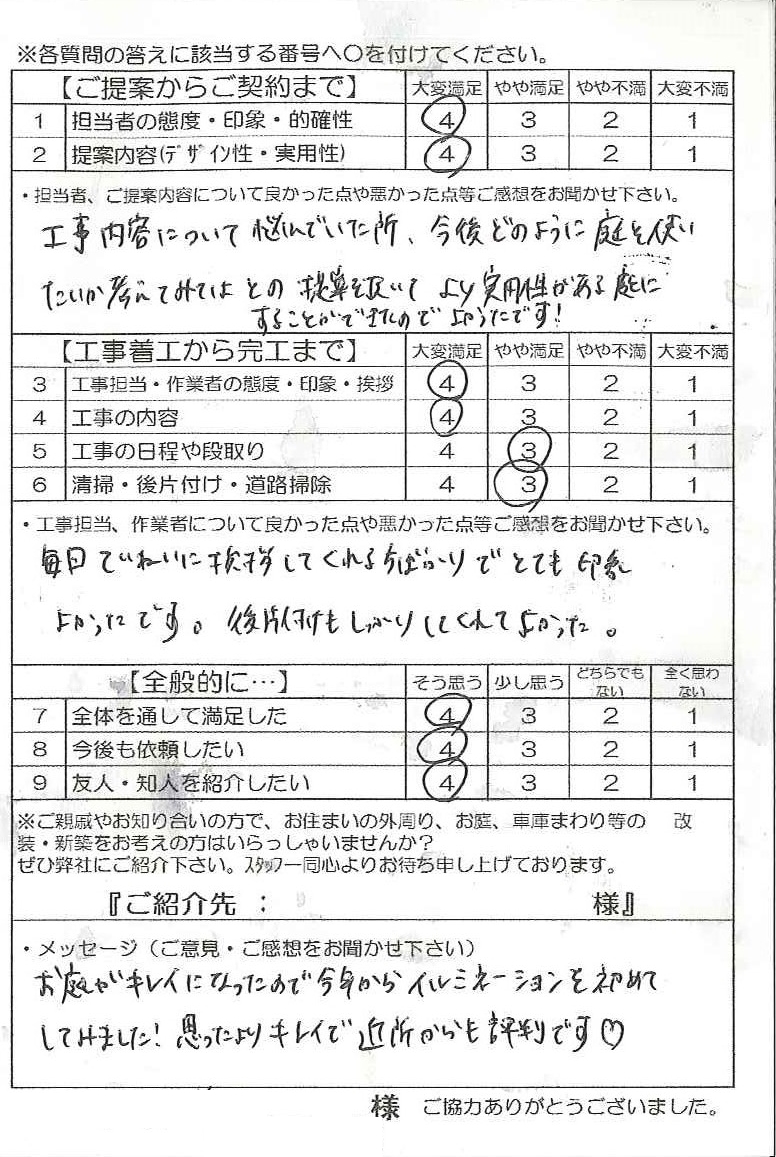 ※各質問の答えに該当する番号へ〇を付けてください。
【ご提案からご契約まで】 大変満足 やや満足 やや不満 大変不満
1 担当者の態度・印象・的確性 4 3 2 1
2 提案内容(ﾃﾞｻﾞｲﾝ性・実用性) 4 3 2 1
・担当者、ご提案内容について良かった点や悪かった点等ご感想をお聞かせ下さい。
工事内容について悩んでいた所、今後どのように庭を使い
たいか考えてみてはとの提案を頂いてより実用性がある庭に
することができたのでよかったです!
【工事着工から完工まで】 大変満足 やや満足 やや不満 大変不満
3 工事担当・作業者の態度・印象・挨拶 4 3 2 1
4 工事の内容 4 3 2 1
5 工事の日程や段取り 4 3 2 1
6 清掃・後片付け・道路掃除 4 3 2 1
・工事担当、作業者について良かった点や悪かった点等ご感想をお聞かせ下さい。
毎回ていねいに挨拶してくれる方ばかりでとても印象
よかったです。後片付けもしっかりしてくれてよかった。
【全般的に…】 そう思う 少し思う どちらでもない 全く思わない
7 全体を通して満足した 4 3 2 1
8 今後も依頼したい 4 3 2 1
9 友人・知人を紹介したい 4 3 2 1
※ご親戚やお知り合いの方で、お住まいの外周り、お庭、車庫まわり等の 改
装・新築をお考えの方はいらっしゃいませんか?
ぜひ弊社にご紹介下さい。ｽﾀｯﾌ一同心よりお待ち申し上げております。
『ご紹介先 : 様』
・メッセージ(ご意見・ご感想をお聞かせ下さい)
お庭がキレイになったので今年からイルミネーションを初めて
してみました!思ったよりキレイで近所からも評判です♡
様 ご協力ありがとうございました。